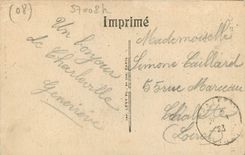 (08)
Imprimé
Un bonjour
de Charleville
Geneviève
Mademoiselle
Simone Caillard
65 rue Marceau
Loire